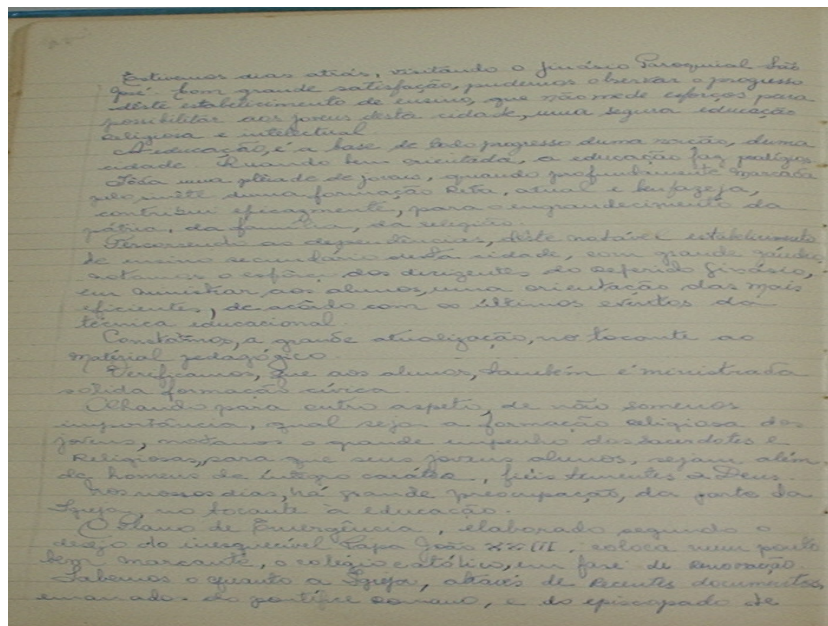 Estivemos dias atrás, visitando o Ginásio Paroquial São
José. Com grande satisfação, pudemos observar o progresso
dêste estabelecimento de ensino, que não mede esforços para
possibilitar aos jovens desta cidade, uma segura educação
religiosa e intelectual.
A educação, é a base de todo progresso duma nação, duma
cidade. Quando bem orientada, a educação faz prodígios.
Tôda uma plêiade de jovens, quando profundamente marcada
pelo duma formação reta, atual e benfazeja,
contribui eficazmente, para o engrandecimento da
pátria, da família, da religião.
Percorrendo as dependências, dêste notável estabelecimento
de ensino secundário desta cidade, com grande júbilo,
notamos o esfôrço dos dirigentes do referido Ginásio,
em ministrar aos alunos, uma orientação das mais
eficientes, de acôrdo com os últimos eventos da
técnica educacional.
Constatamos, a grande atualização, no tocante ao
material pedagógico.
Verificamos, que aos alunos, também é ministrada
solida formação cívica.
Olhando para outro aspeto, de não somenos
importância, qual seja a formação religiosa dos
jovens, notamos o grande empenho dos sacerdotes e
religiosas, para que seus jovens alunos, sejam além
de homens de íntegro caráter, fiéis tementes a Deus.
Nos nossos dias, há grande preocupação, da parte da
Igreja, no tocante à educação.
O Plano de Emergência, elaborado segundo o
desejo do inesquecível Papa João XXIII, coloca num ponto
bem marcante, o colégio católico, em fase de renovação.
Sabemos o quanto a Igreja, através de recentes documentos,
emanados do pontífice romano, e do episcopado de